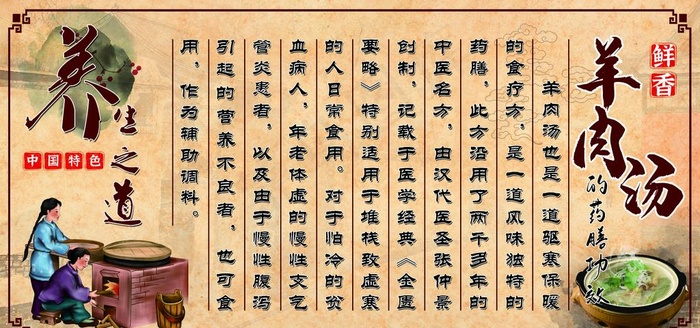 鲜香
羊肉汤
的药膳功效
羊肉汤也是一道驱寒保暖
的食疗方，是一道风味独特的
药膳，此方沿用了两千多年的
中医名方，由汉代医圣张仲景
创制，记载于医学经典《金匮
要略》特别适用于堆栈致虚寒
的人日常食用。对于怕冷的贫
血病人，年老体虚的慢性支气
管炎患者，以及由于慢性腹泻
引起的营养不良者，也可食
用，作为辅助调料。
养生之道
中国特色